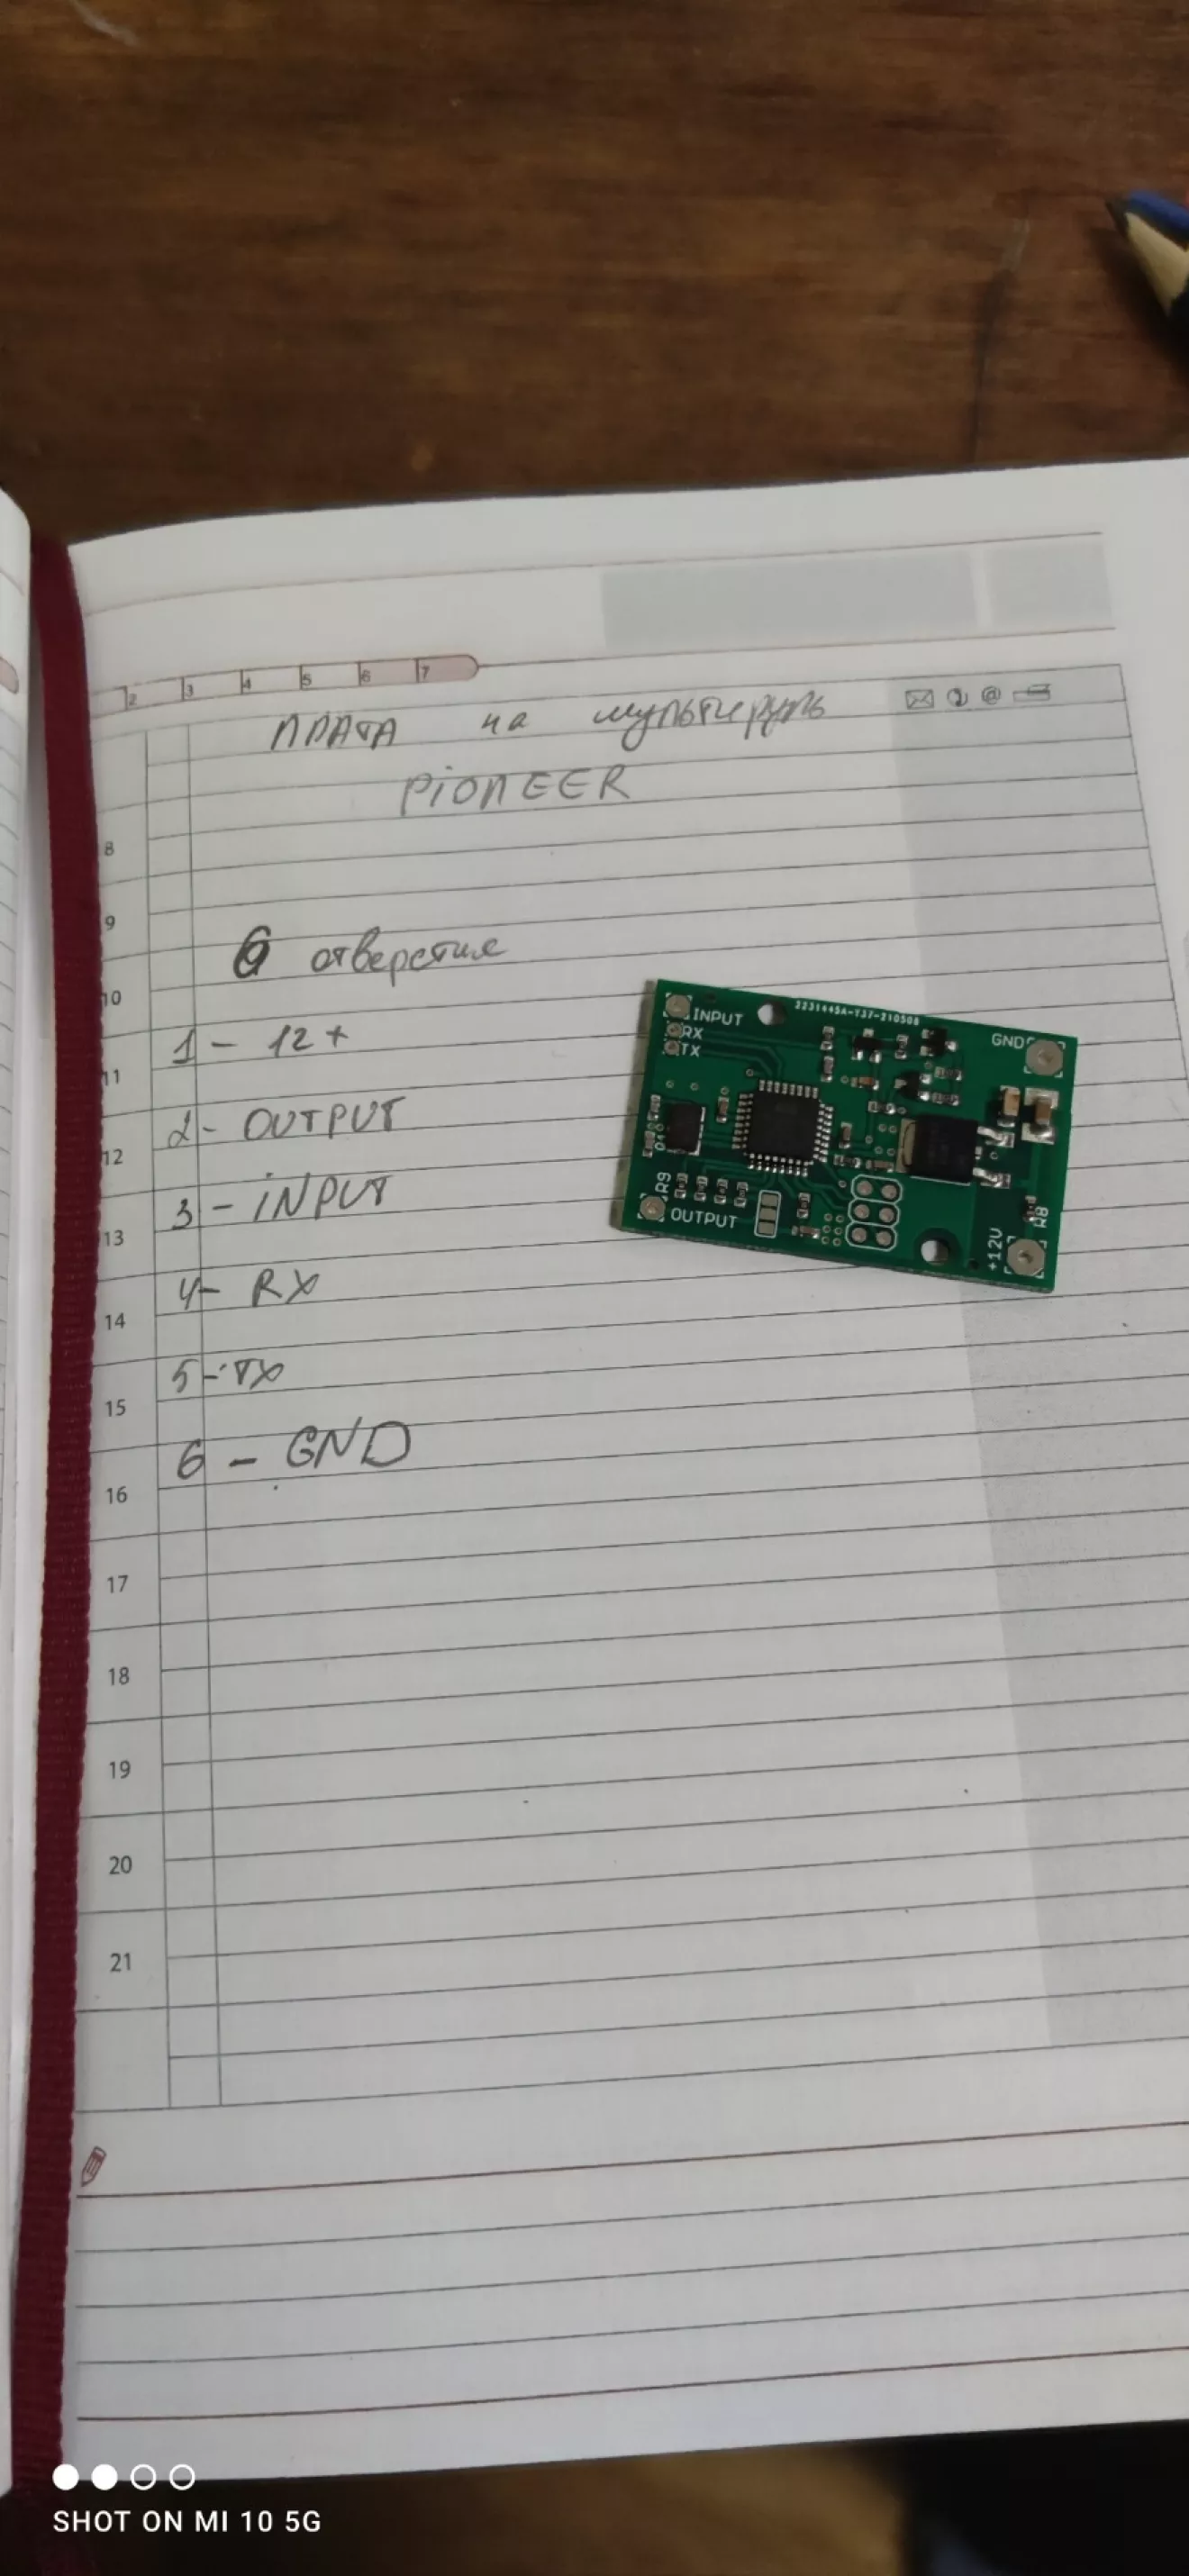 2 3 4 5 6 7
плата на мультируль
PiONEER
8
9
6 отверстие
10
1 - 12 +
11
2 - OUTPUT
12
3 - iNPUT
13
4 - RX
14
5 - TX
15
6 - GND
16
17
18
19
20
21
3231445A-Y37-210508
INPUT
RX
TX
GND
R9
OUTPUT
+12V
R8
SHOT ON MI 10 5G